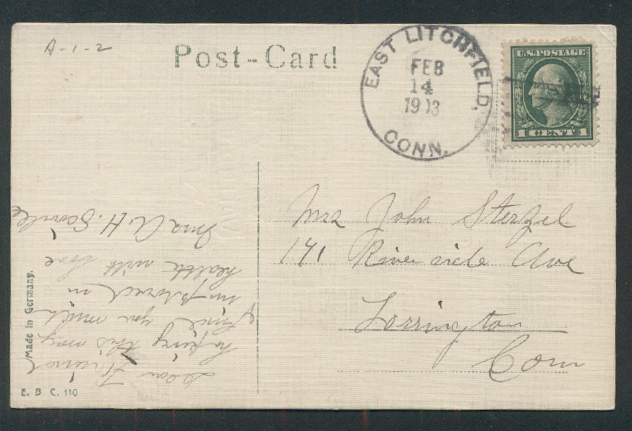 A-1-2
Post-Card
EAST LITCHFIELD,
FEB
14
1913
CONN.
U.S. POSTAGE
1 CENTS 1
Mrs John Sterzel
171 Riverside Ave
Torrington
Conn
Dear Friend
hoping this may
find you much
improved in
health with love
Mrs A. H. Scoville
Made in Germany.
E. B. C. 110